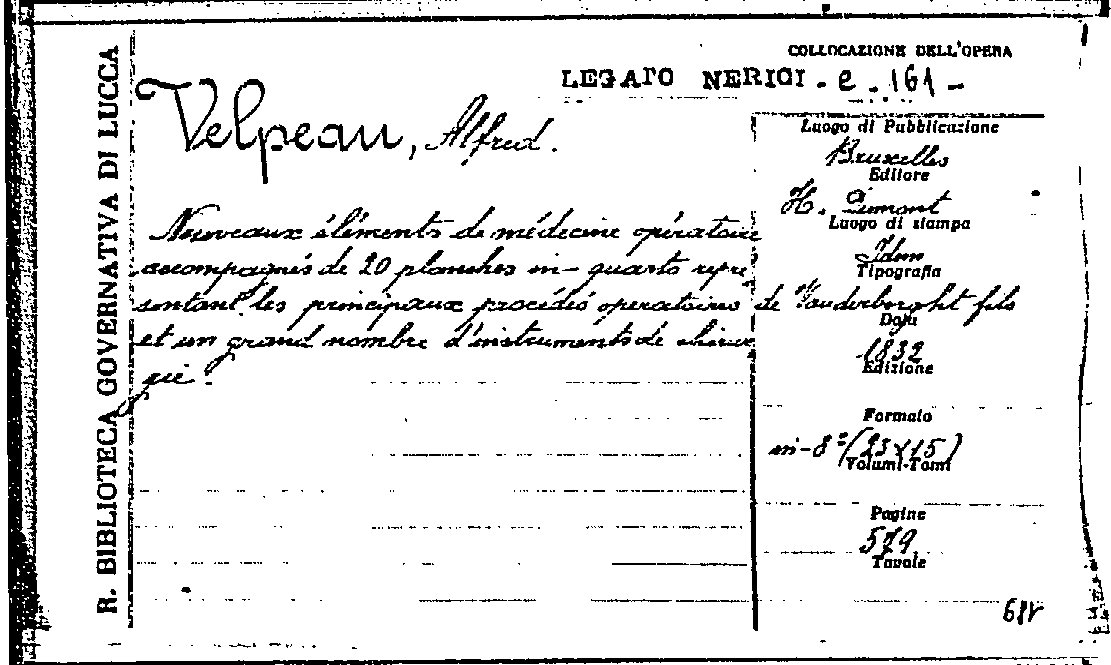 R. BIBLIOTECA GOVERNATIVA DI LUCCA
COLLOCAZIONE DELL'OPERA
LEGATO NERICI - e - 161 -
Velpeau, Alfred.
Nouveaux éléments de médecine opératoire
accompagnés de 20 planches in-quarto repré
sentant les principaux procédés operatoires
et un grand nombre d'instruments de chirur
gie.
Luogo di Pubblicazione
Bruxelles
Editore
H. Dumont
Luogo di stampa
Idem
Tipografia
de Vanderborght fils
Data
1832
Edizione
Formato
in-8° (23x15)
Volumi-Tomi
Pagine
579
Tavole